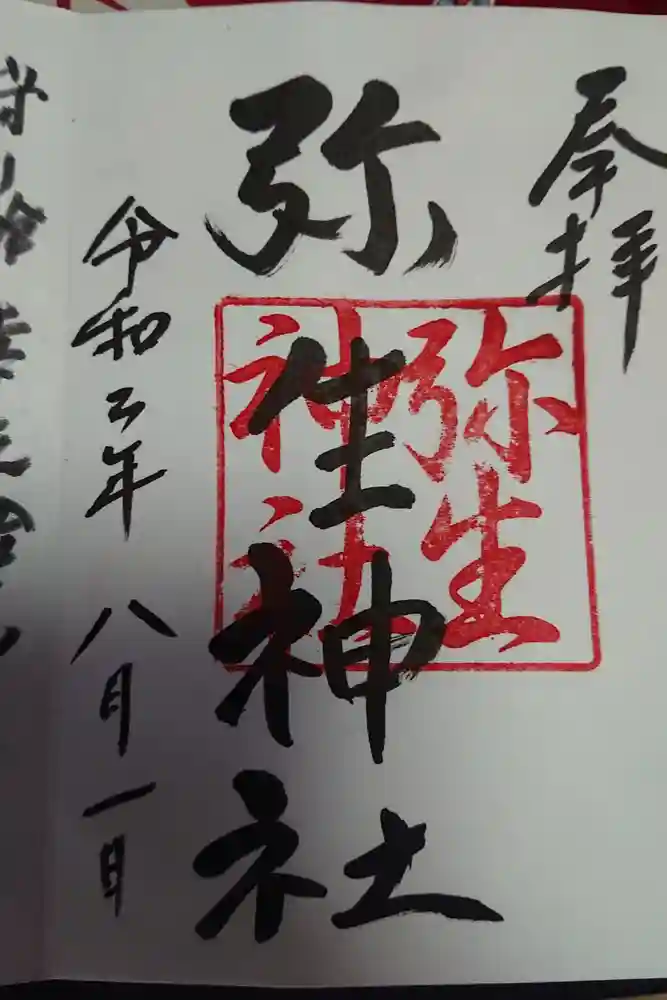 奉拝
弥生神社
弥生
神社
令和三年 八月一日